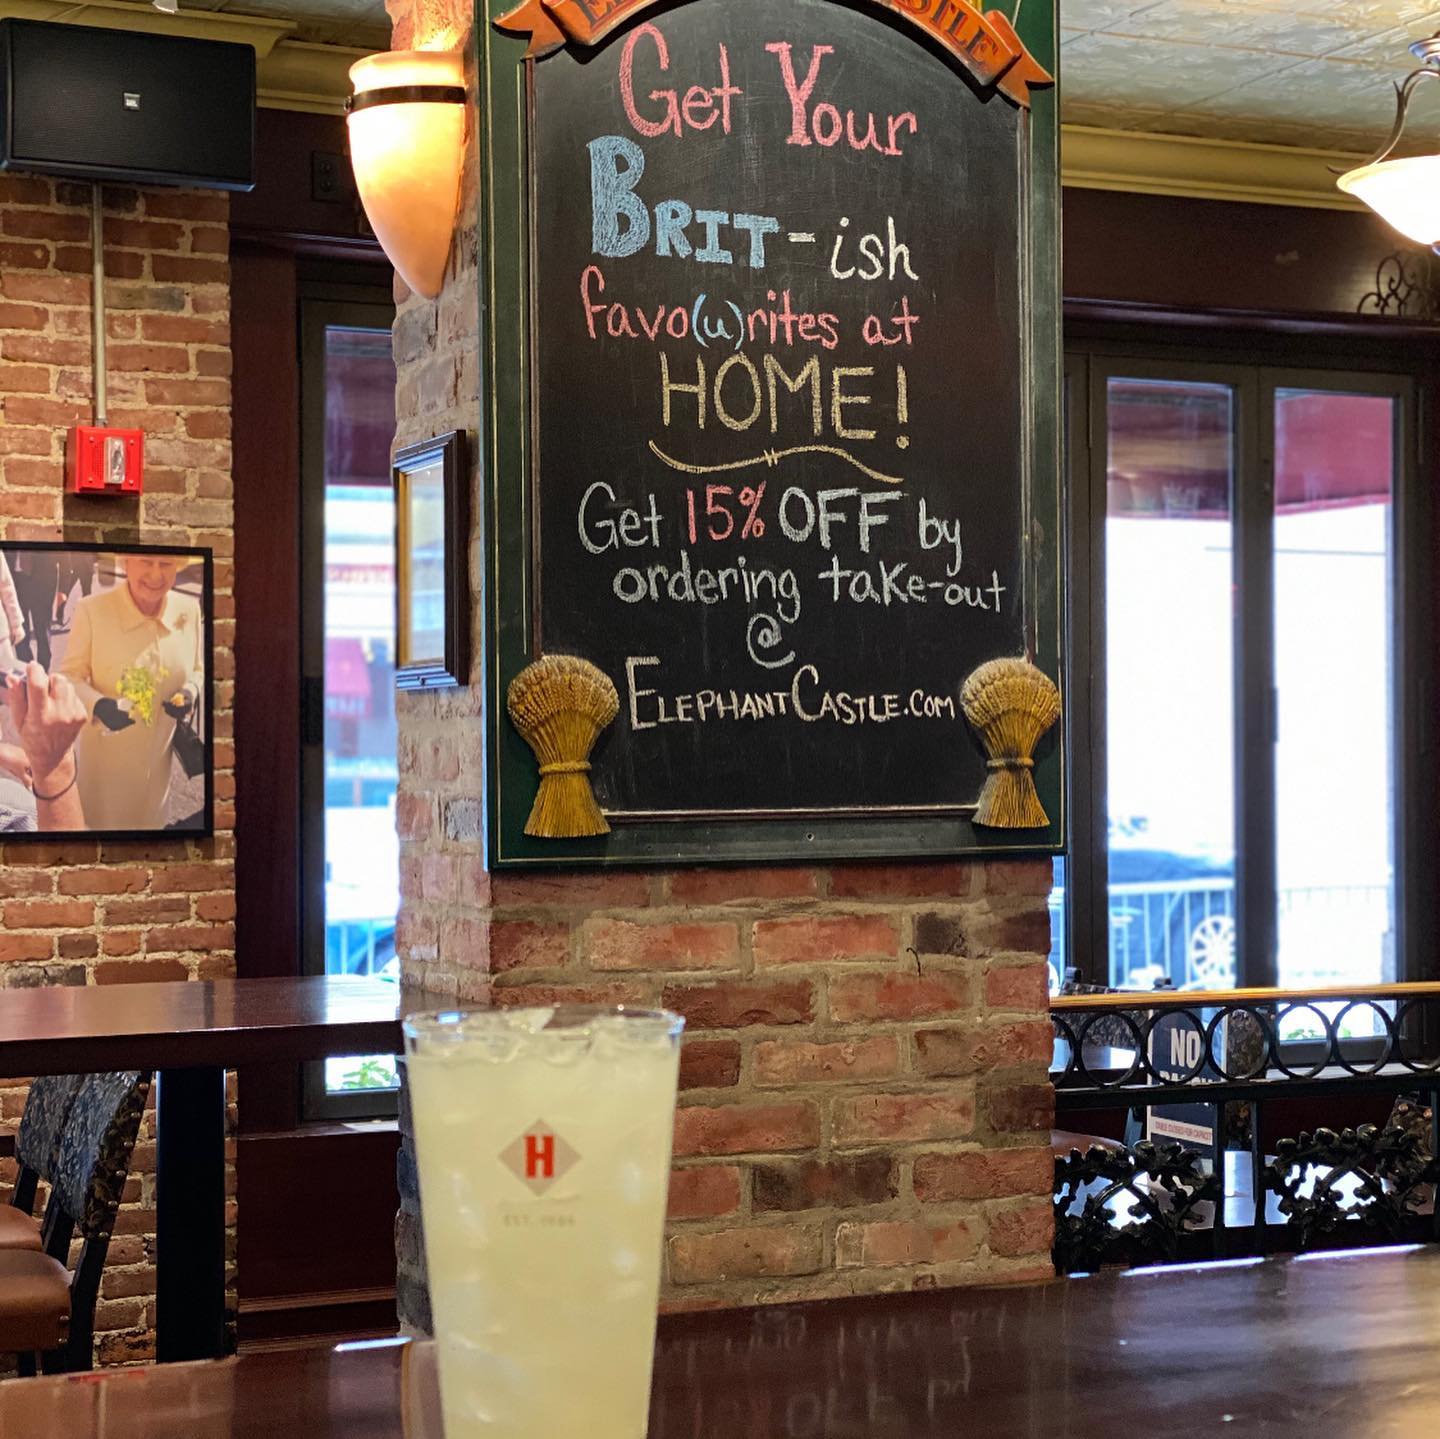 Get Your
BRIT-ish
favo(u)rites at
HOME!
Get 15% OFF by
ordering take-out
@
ELEPHANTCASTLE.COM
JBL
NO
H
EST.